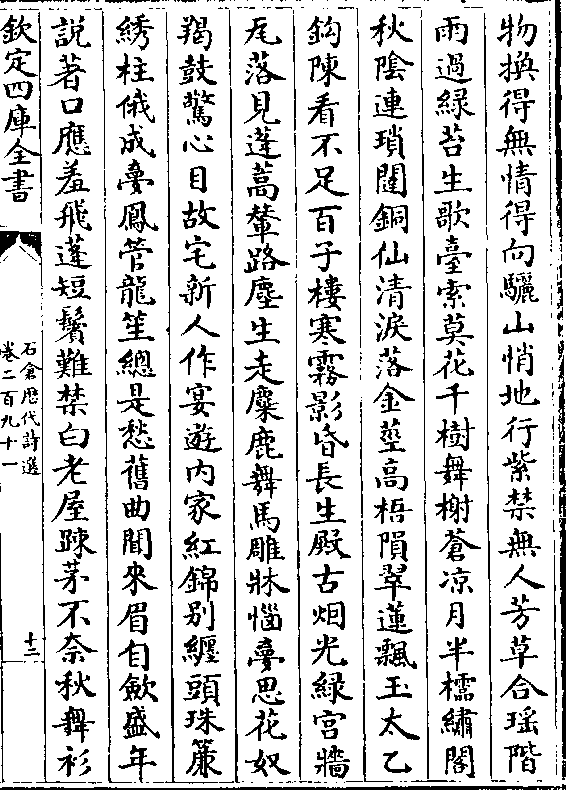 物換得無情得向驪山悄地行紫禁無人芳草合瑶階
雨過緑苔生歌臺索莫花千樹舞榭蒼凉月半櫺繡閣
秋陰連瑣闥銅仙清淚落金莖高梧隕翠蓮飄玉太乙
鈎陳看不足百子樓寒霧影昏長生殿古烟光緑宮牆
瓦落見蓬蒿輦路塵生走麋鹿舞馬雕牀惱夢思花奴
羯鼓驚心目故宅新人作宴遊内家紅錦别纏頭珠簾
綉柱俄成夢鳳管龍笙總是愁舊曲聞來眉自歛盛年
説著口應羞飛蓬短鬢難禁白老屋踈茅不奈秋舞衫
欽定四庫全書
石倉歴代詩選
卷二百九十一
十二